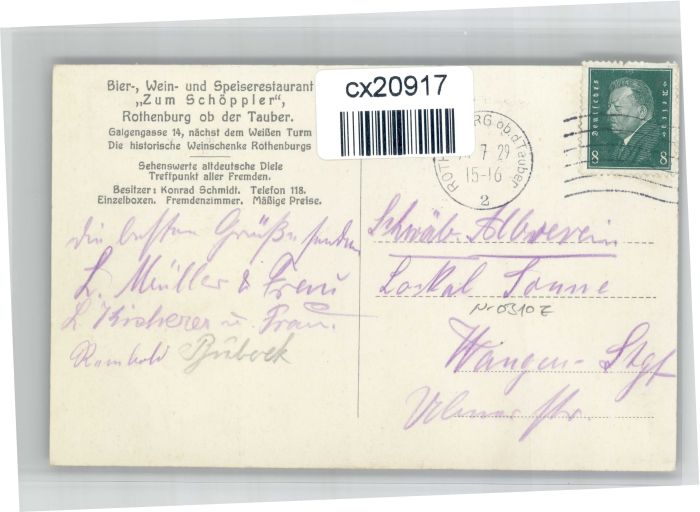 Bier-, Wein- und Speiserestaurant
„Zum Schöppler“,
Rothenburg ob der Tauber.
Galgengasse 14, nächst dem Weißen Turm
Die historische Weinschenke Rothenburgs
Sehenswerte altdeutsche Diele
Treffpunkt aller Fremden.
Besitzer: Konrad Schmidt. Telefon 118.
Einzelboxen. Fremdenzimmer. Mäßige Preise.
cx20917
RG ob.d.Tauber
7 29
15-16
2
Deutsches Reich
8 8
die besten Grüße senden
L. Müller & Frau
L. Kicherer u. Frau.
Rombold
Schwäb Albverein
Lokal Sonne
Nr 0310 Z
Wangen - Stgt
Ulmer str.